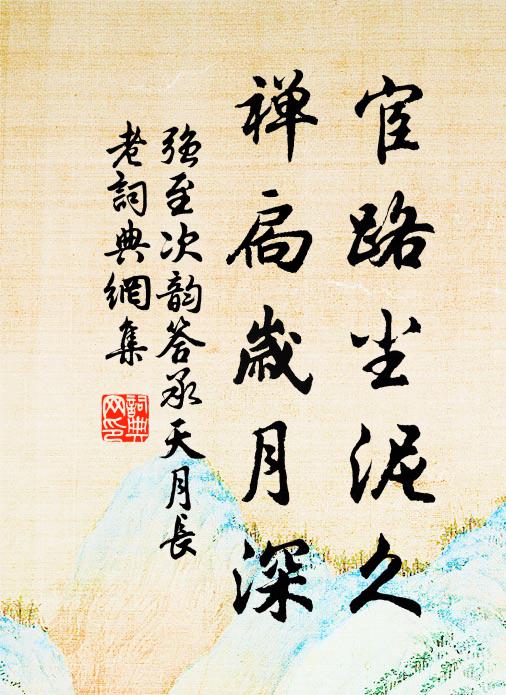 宦路尘泥久
禅扃岁月深
强至次韵答承天月长
老詞典網集
詞典
网印